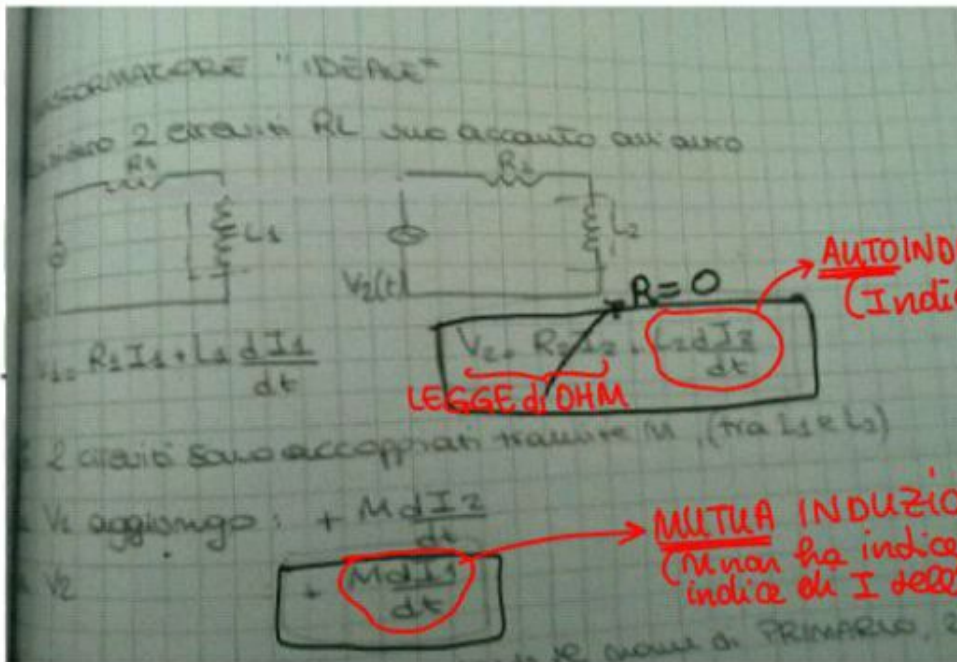 "IDEALE"
2 circuiti RL uno accanto all'altro
R1
L1
R2
L2
V2(t)
R=0
AUTOIND
(Indi
V1= R1I1 + L1 dI1/dt
V2= R2I2 + L2 dI2/dt
LEGGE di OHM
2 circuiti sono accoppiati tramite M, (tra L1 e L2)
V1 aggiungo: + M dI2/dt
V2 + M dI1/dt
MUTUA INDUZIO
(M non ha indice
indice di I dell
di PRIMARIO, 2